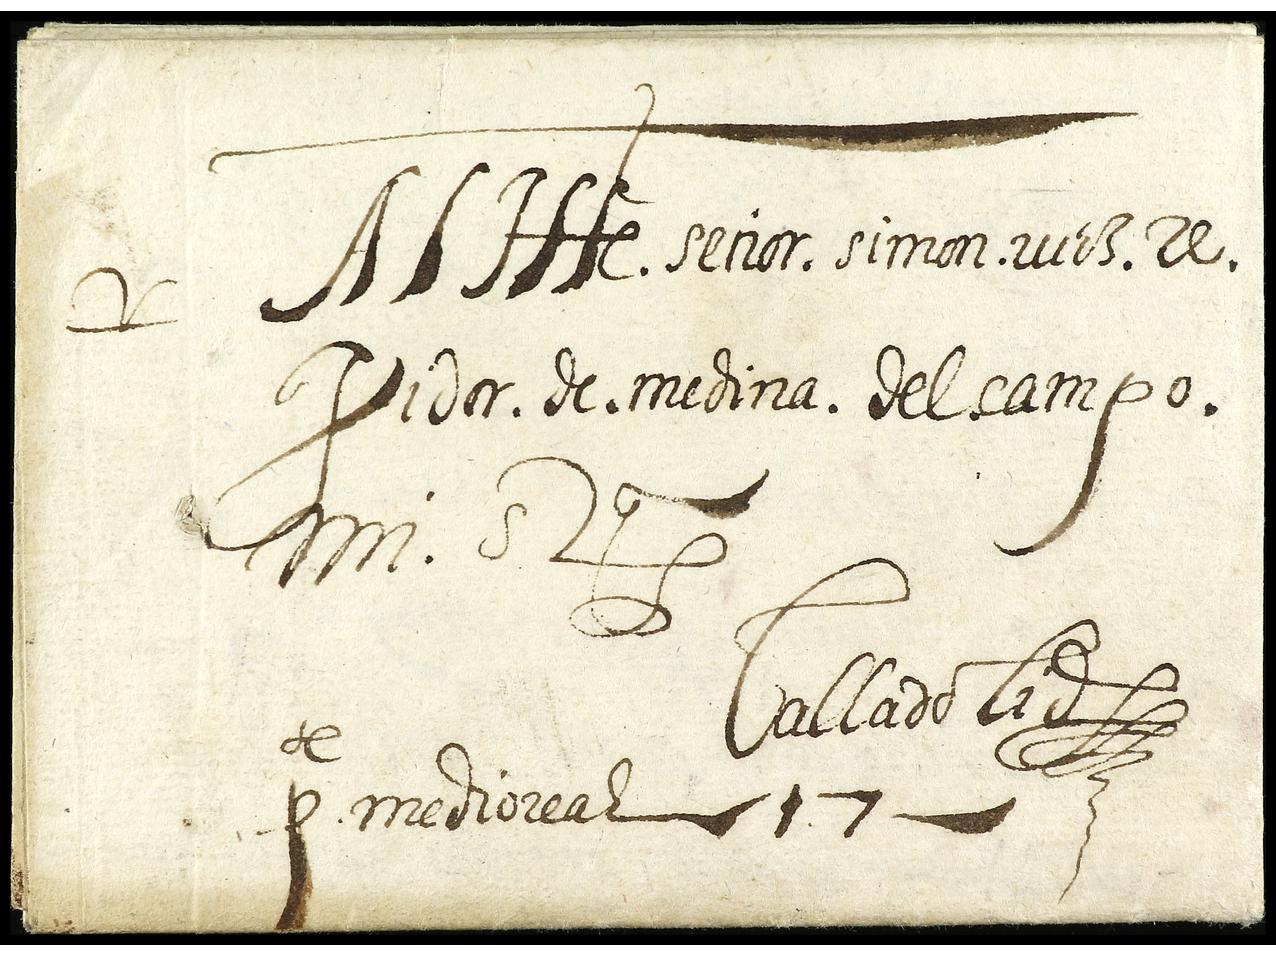 Al Ille. señor. simon. ruiz. Re.
gidor. de. medina. del campo.
mi. sr
Valladolid
pte. medio real 17